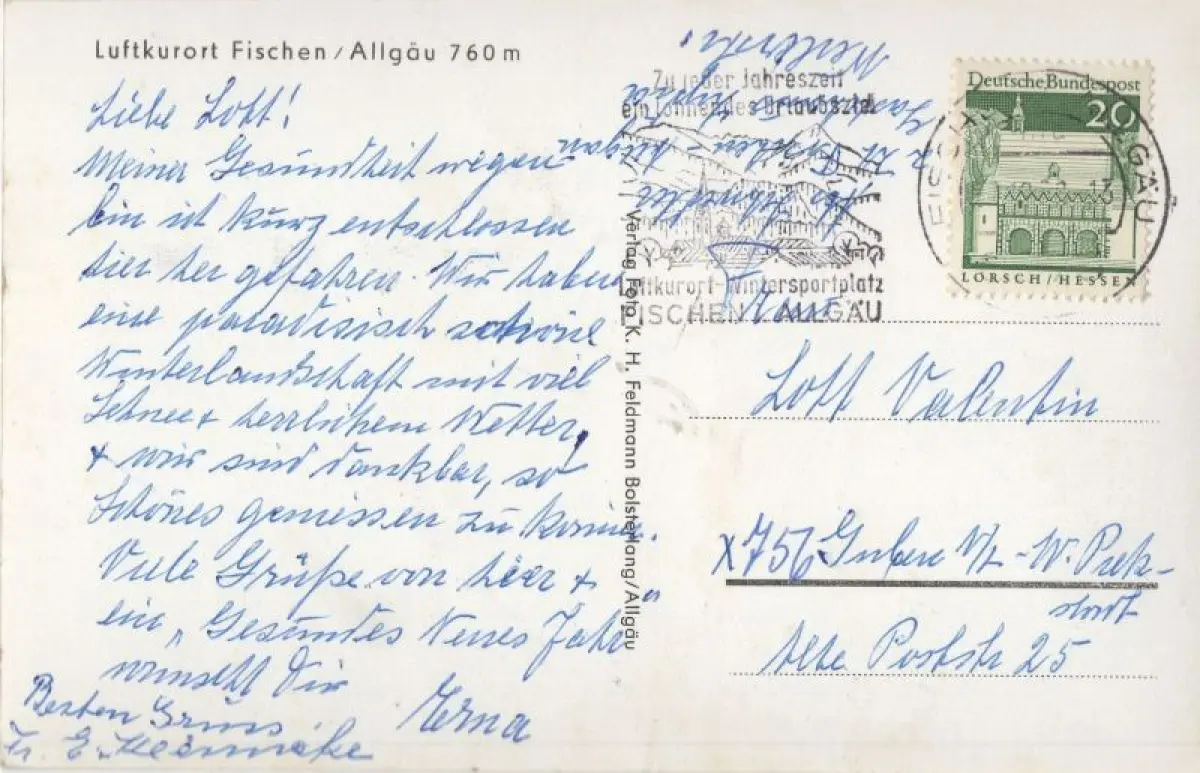 Luftkurort Fischen/Allgäu 760 m
Liebe Lott!
Meiner Gesundheit wegen
bin ich kurz entschlossen
hier her gefahren. Wir haben
eine paradisisch schöne
Winterlandschaft mit viel
Schnee + herrlichem Wetter,
+ wir sind dankbar, so
Schönes geniessen zu können.
Viele Grüße von hier +
ein „Gesundes Neues Jahr"
wünscht Dir
Erna
Besten Gruss
Verlag Foto K. H. Feldmann Bolsterlang/Allgäu
Zu jeder Jahreszeit
ein lohnendes Urlaubsziel
Luftkurort-Wintersportplatz
FISCHEN ALLGÄU
Deutsche Bundespost
20
LORSCH/HESSEN
Frau
Lott Valentin
X756 Guben Wilh.-Pieck-
stadt
Alte Poststr 25